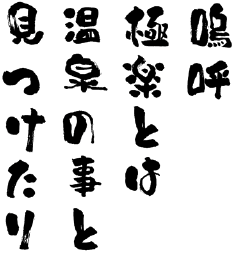 嗚呼
極楽とは
温泉の事と
見つけたり